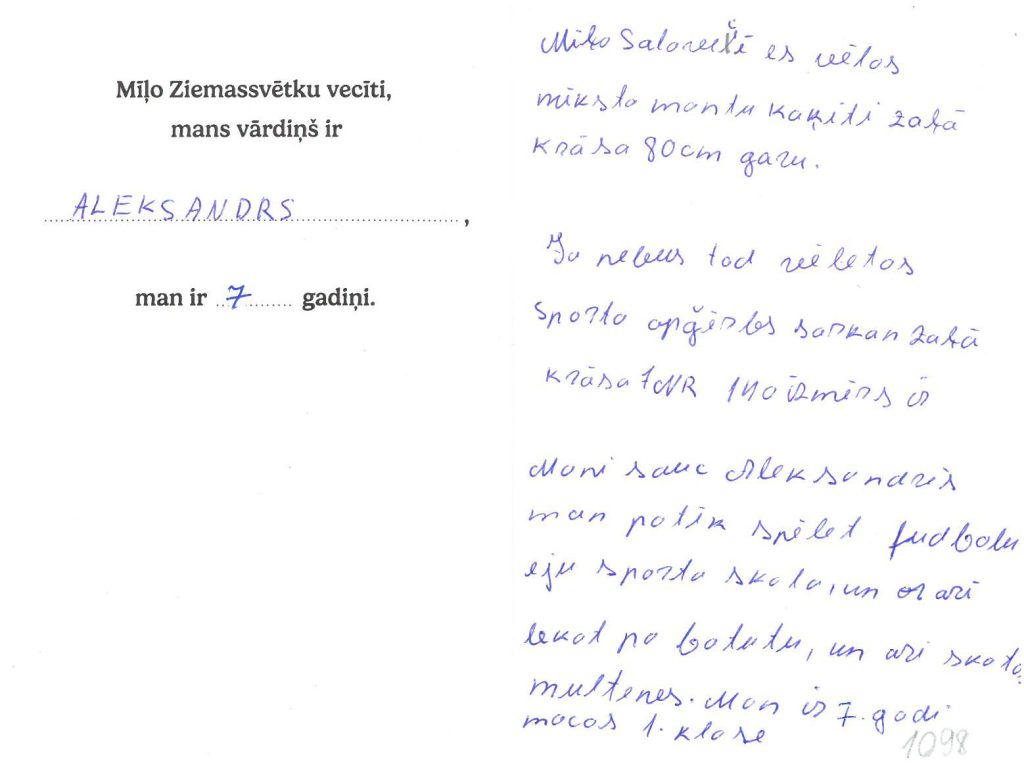 Mīļo Ziemassvētku vecīti,
mans vārdiņš ir
ALEKSANDRS,
man ir 7 gadiņi.
Mīļo Salavecītē es vēlos
mīksto mantu kaķiti zaļā
krāsa 80cm garu.
Ja nebus tad vēletos
sporta apģērbs sarkan zaļā
krāsa 140 izmērs ir
Mani sauc Aleksandris
man patik spēlet fudbolu
eju sporta skola, un arī
lekat pa batutu, un ari skata
multenes. Man ir 7. gadi
macos 1. klase
1098